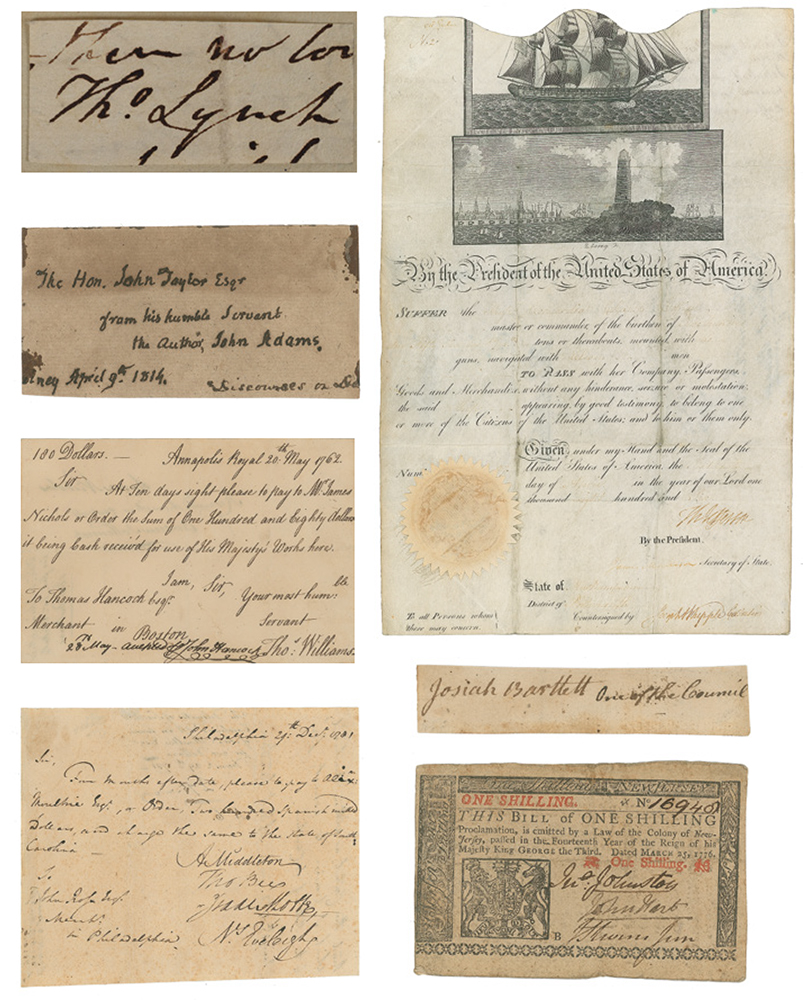 Then no lon
Tho. Lynch
The Hon. John Taylor Esqr
from his humble Servant
the Author, John Adams.
April 9th 1814.
Discourses on
180 Dollars. — Annapolis Royal 20th May 1762.
Sir
At Ten days sight please to pay to Mr. James
Nichols or Order the Sum of One Hundred and Eighty Dollars
it being Cash receiv'd for use of His Majesty's Works here.
I am, Sir, Your most humble
To Thomas Hancock Esqr. Servant
Merchant in Boston
28th May - accepted John Hancock Thos. Williams.
Philadelphia 29th Decr. 1781
Sir,
Four Months after date, please to pay to Alexr.
Moultrie Esqr., or Order, Two hundred Spanish milled
Dollars, and charge the same to the State of South
Carolina —
A Middleton
Tho Bee
To
John Ross Esqr.
Mercht.
in Philadelphia
Ns. Eveleigh
By the President of the United States of America
SUFFER the
master or commander, of the burthen of
tons or thereabouts, mounted with
guns, navigated with men
TO PASS with her Company, Passengers,
Goods and Merchandize, without any hinderance, seizure or molestation:
the said appearing by good testimony, to belong to one
or more of the Citizens of the United States; and to him or them only.
Given under my Hand and the Seal of the
Num. United States of America the
day of in the year of our Lord one
thousand hundred and
Th Jefferson
By the President.
Secretary of State.
State of
District of
To all Persons whom
these may concern.
Countersigned by Joseph Whipple
Josiah Bartlett One of the Council
One Shilling. NEW-JERSEY
ONE SHILLING. No 16948
THIS Bill of ONE SHILLING
Proclamation, is emitted by a Law of the Colony of New-
Jersey, passed in the Fourteenth Year of the Reign of his
Majesty King GEORGE the Third. Dated MARCH 25, 1776.
One Shilling.
Jno. Johnston
John Hart
B J Stevens Jun